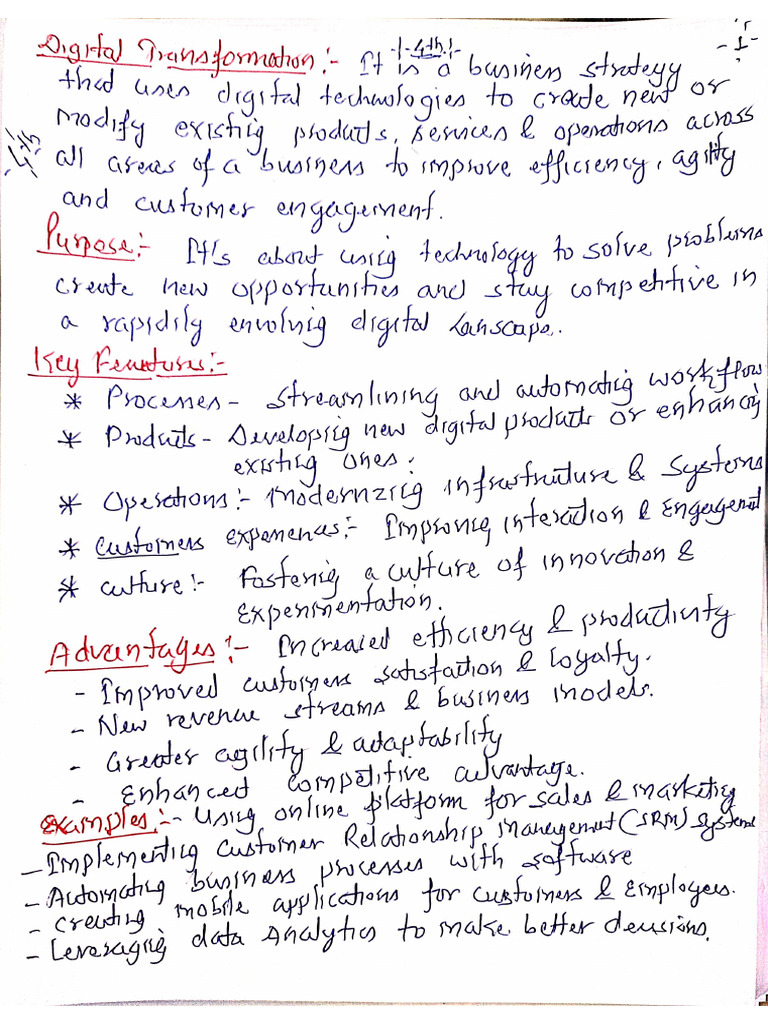 -|- 4th -|-
- 1 -
Digital Transformation :- It is a business strategy
that uses digital technologies to create new or
modify existing products, services & operations across
all areas of a business to improve efficiency, agility
and customer engagement.
Purpose:- It's about using technology to solve problems
create new opportunities and stay competitive in
a rapidily envolving digital Lanscape.
Key Features:-
* Processes - Streamlining and automating workflow
* Products - Developing new digital products or enhancing
existing ones.
* Operations :- Modernizing infrastructure & Systems
* Customers experiences:- Improving interaction & Engagement
* culture :- Fostering a culture of innovation &
Experimentation.
Advantages :- Increased efficiency & productivity
- Improved customers satisfaction & loyalty.
- New revenue streams & business models.
- Greater agility & adaptability
- Enhanced competitive advantage.
Examples :- - Using online platform for sales & marketing
- Implementing Customer Relationship Management (SRM) Systems
- Automating business processes with software
- Creating mobile applications for customers & Employees.
- Leveraging data Analytics to make better decisions.